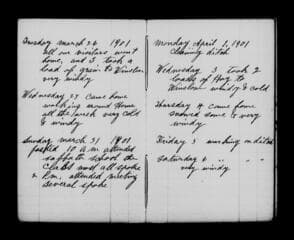 Tuesday March 26 1901
all our visitors went
home, and I took a
load of grain to Winslow
very windy
Wednesday 27 came home
working around Home
all the week very cold
& windy
Sunday March 31 1901
fasted 10 A.m. attended
sabbath school the
Class and all spoke
2 P.m. attended meeting
several spoke
Monday April 1, 1901
Cleaning ditch
Wednesday 3 took 2
loads of Hay to
Winslow windy & cold
Thursday 4 came home
snowed some & very
windy
Friday 5 working on ditch
Saturday 6 " " "
very windy